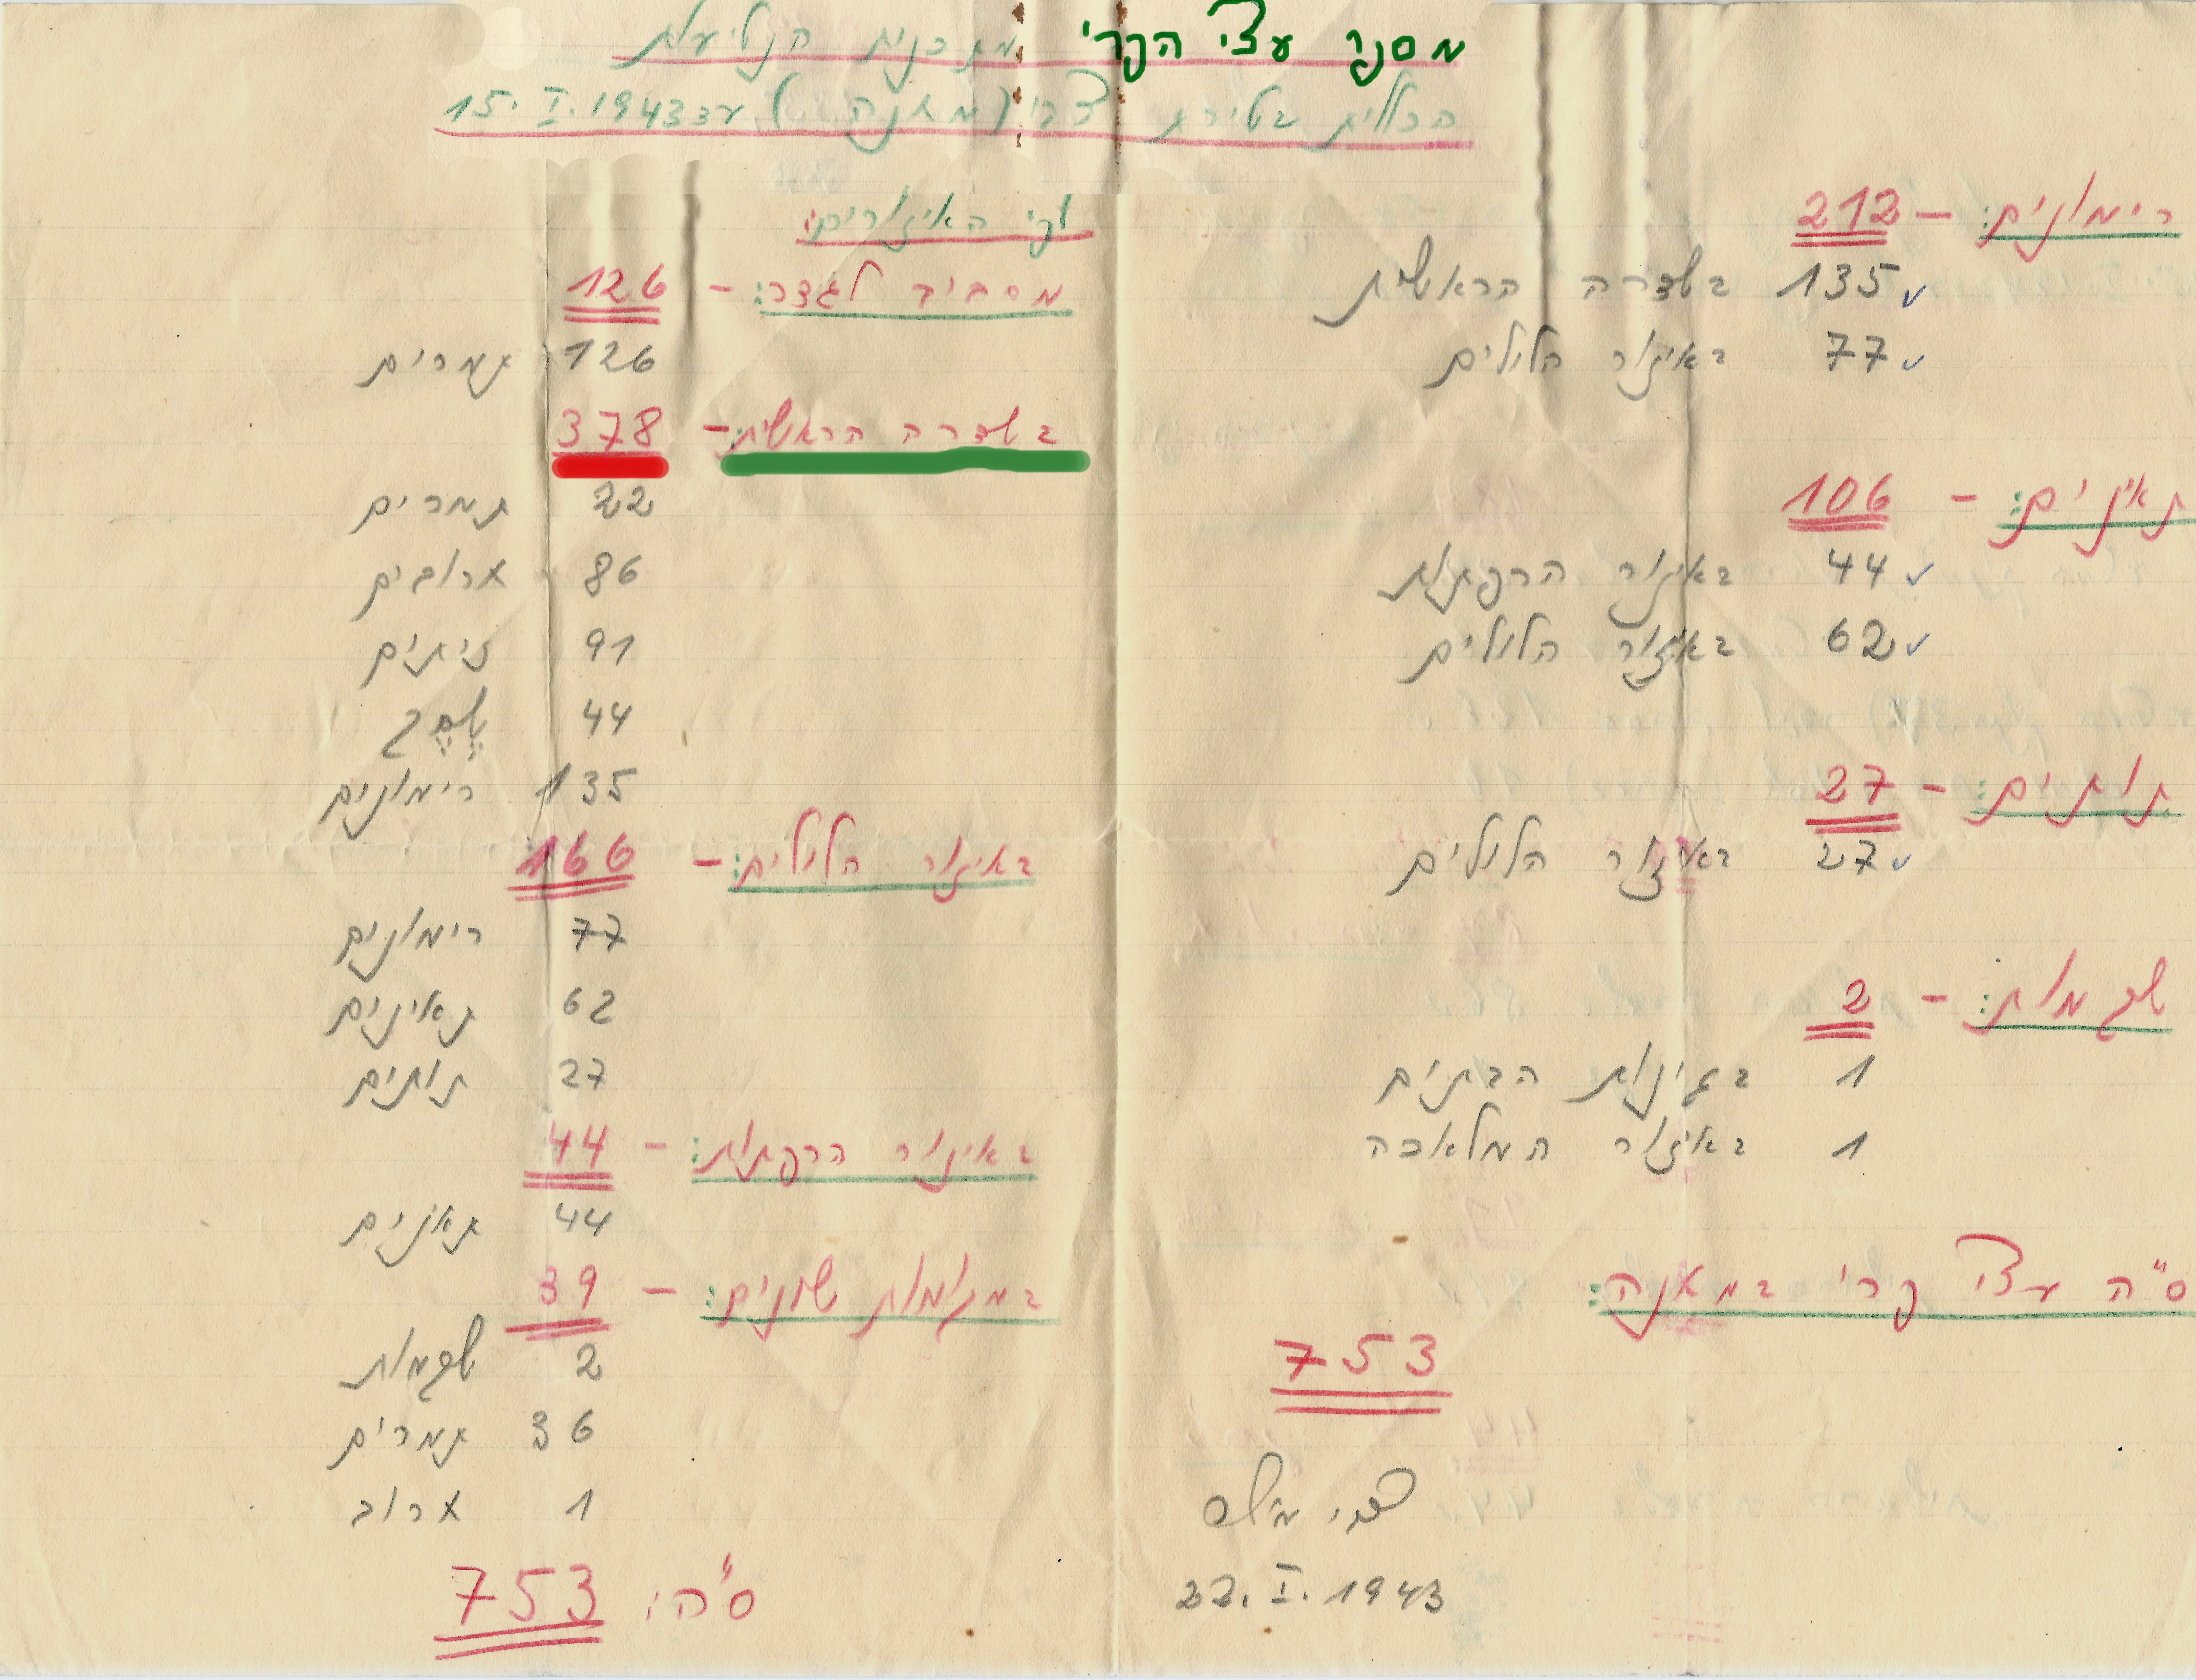 מספר עצי הפרי מתכנית הנטיעות
הכללית בטירת צבי (מחנה) עד 15.I.1943
רימונים: – 212
135 בשדרה הראשית
77 באיזור הלולים
תאנים: – 106
44 באיזור הרפתות
62 באיזור הלולים
תותים: – 27
27 באיזור הלולים
שקמות: – 2
1 בגינות הבתים
1 באיזור המלאכה
ס"ה עצי פרי במחנה:
753
22.I.1943
לפי האיזורים:
מסביב לגדר: – 126
126 תמרים
בשדרה הראשית: – 378
22 תמרים
86 חרובים
91 זיתים
44 שסק
135 רימונים
באיזור הלולים: – 166
77 רימונים
62 תאינים
27 תותים
באיזור הרפתות: – 44
44 תאנים
במקומות שונים: – 39
2 שקמות
36 תמרים
1 חרוב
ס"ה: 753